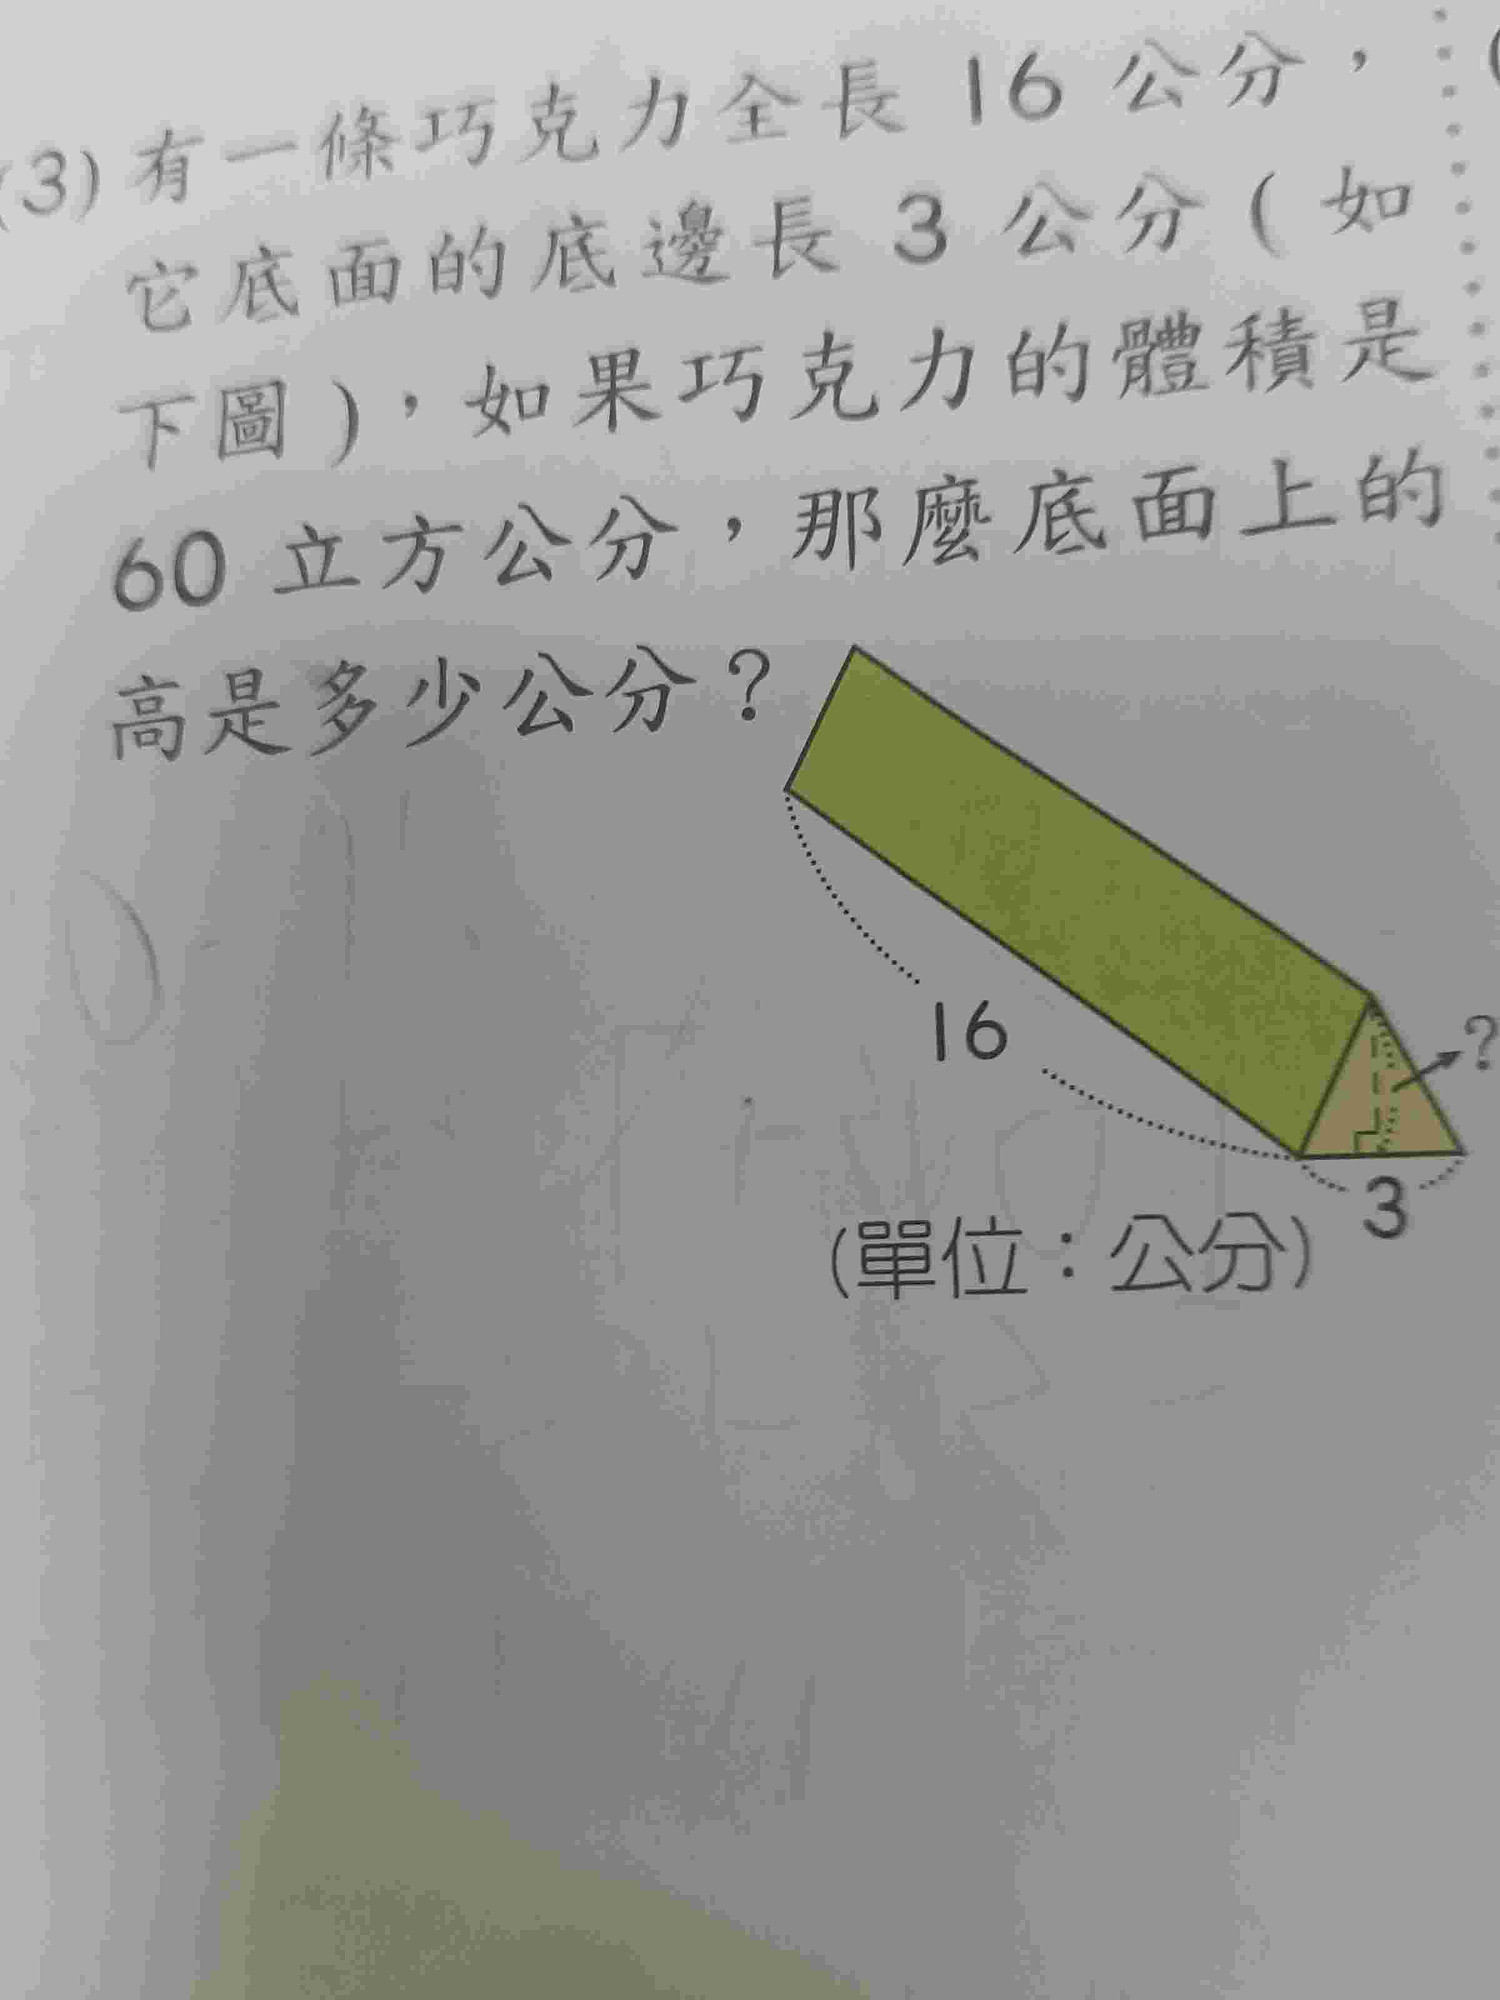 (3) 有一條巧克力全長 16 公分，
它底面的底邊長 3 公分 ( 如
下圖 )，如果巧克力的體積是
60 立方公分，那麼底面上的
高是多少公分？
16
?
3
(單位：公分)